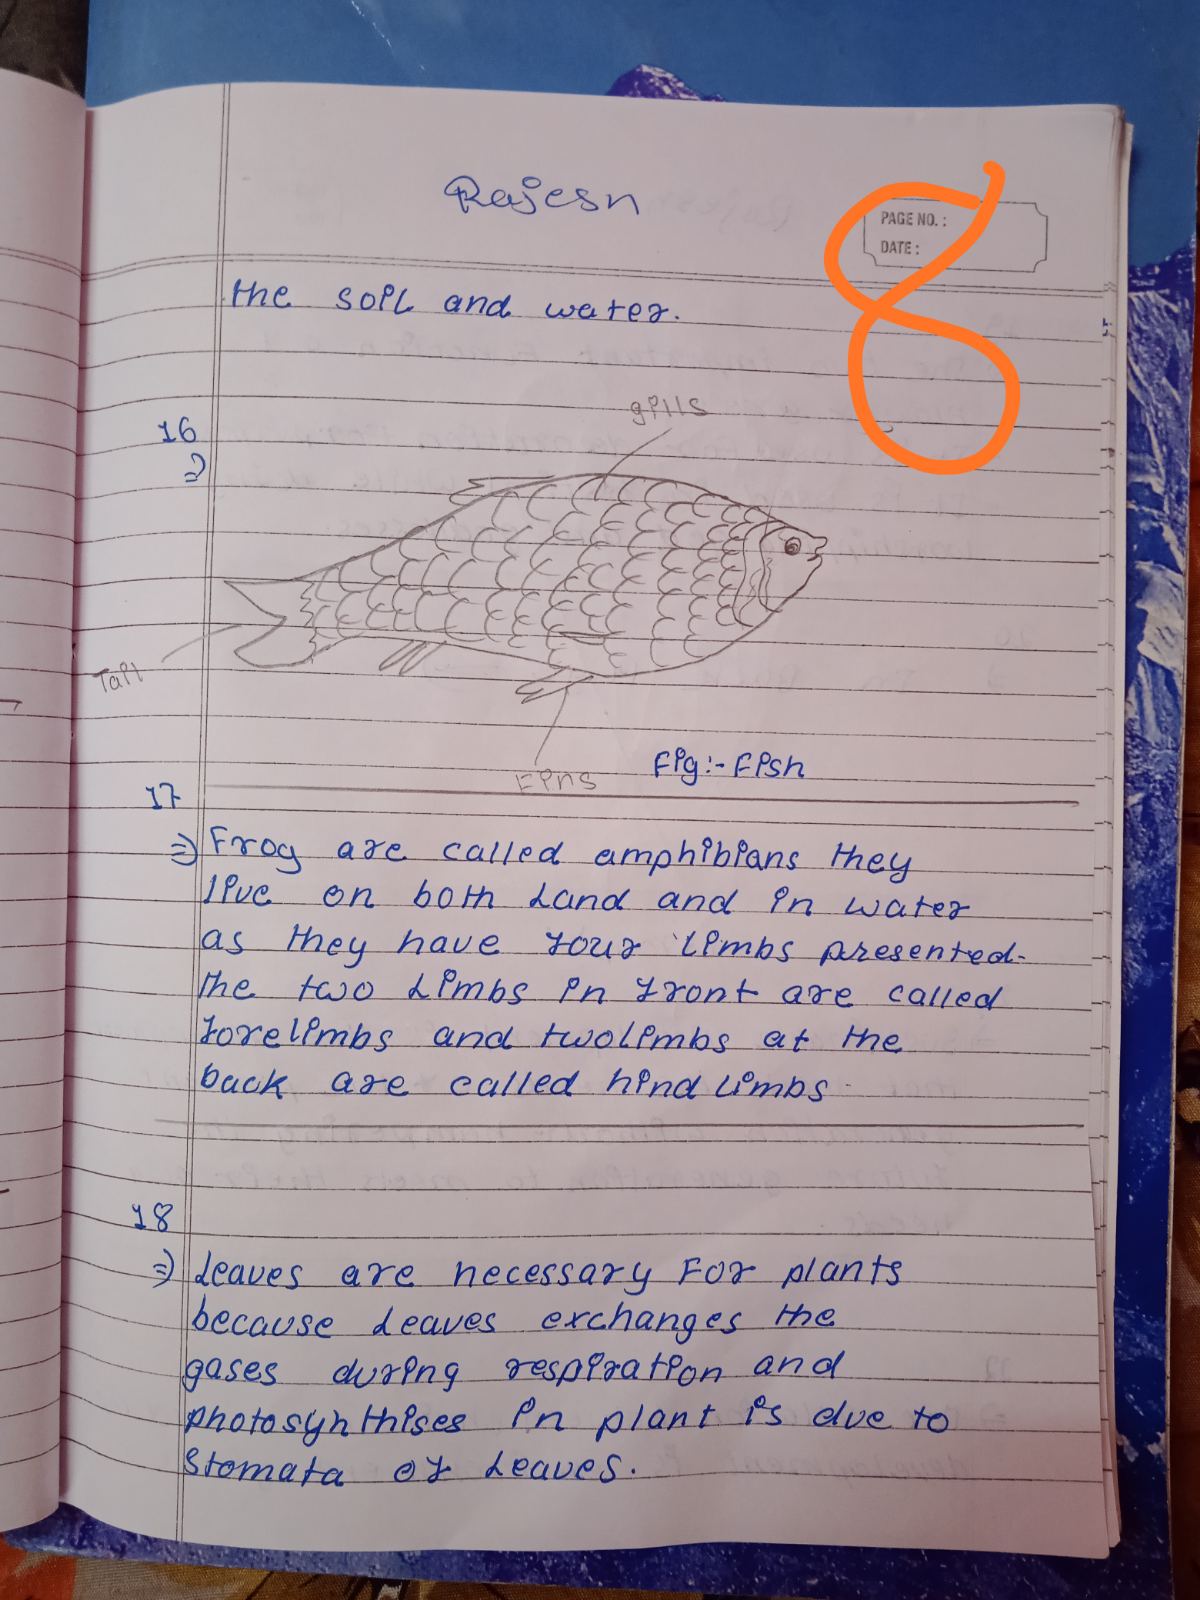 Rajesh
8
PAGE NO. :
DATE :
the soil and water.
gills
16
⇒
Tail
Fins
Fig:- Fish
17
⇒ Frog are called amphibians they
live on both Land and in water
as they have four limbs presented.
the two Limbs in front are called
forelimbs and twolimbs at the
back are called hind limbs.
18
⇒ Leaves are necessary For plants
because Leaves exchanges the
gases during respiration and
photosynthises in plant is due to
Stomata of Leaves.